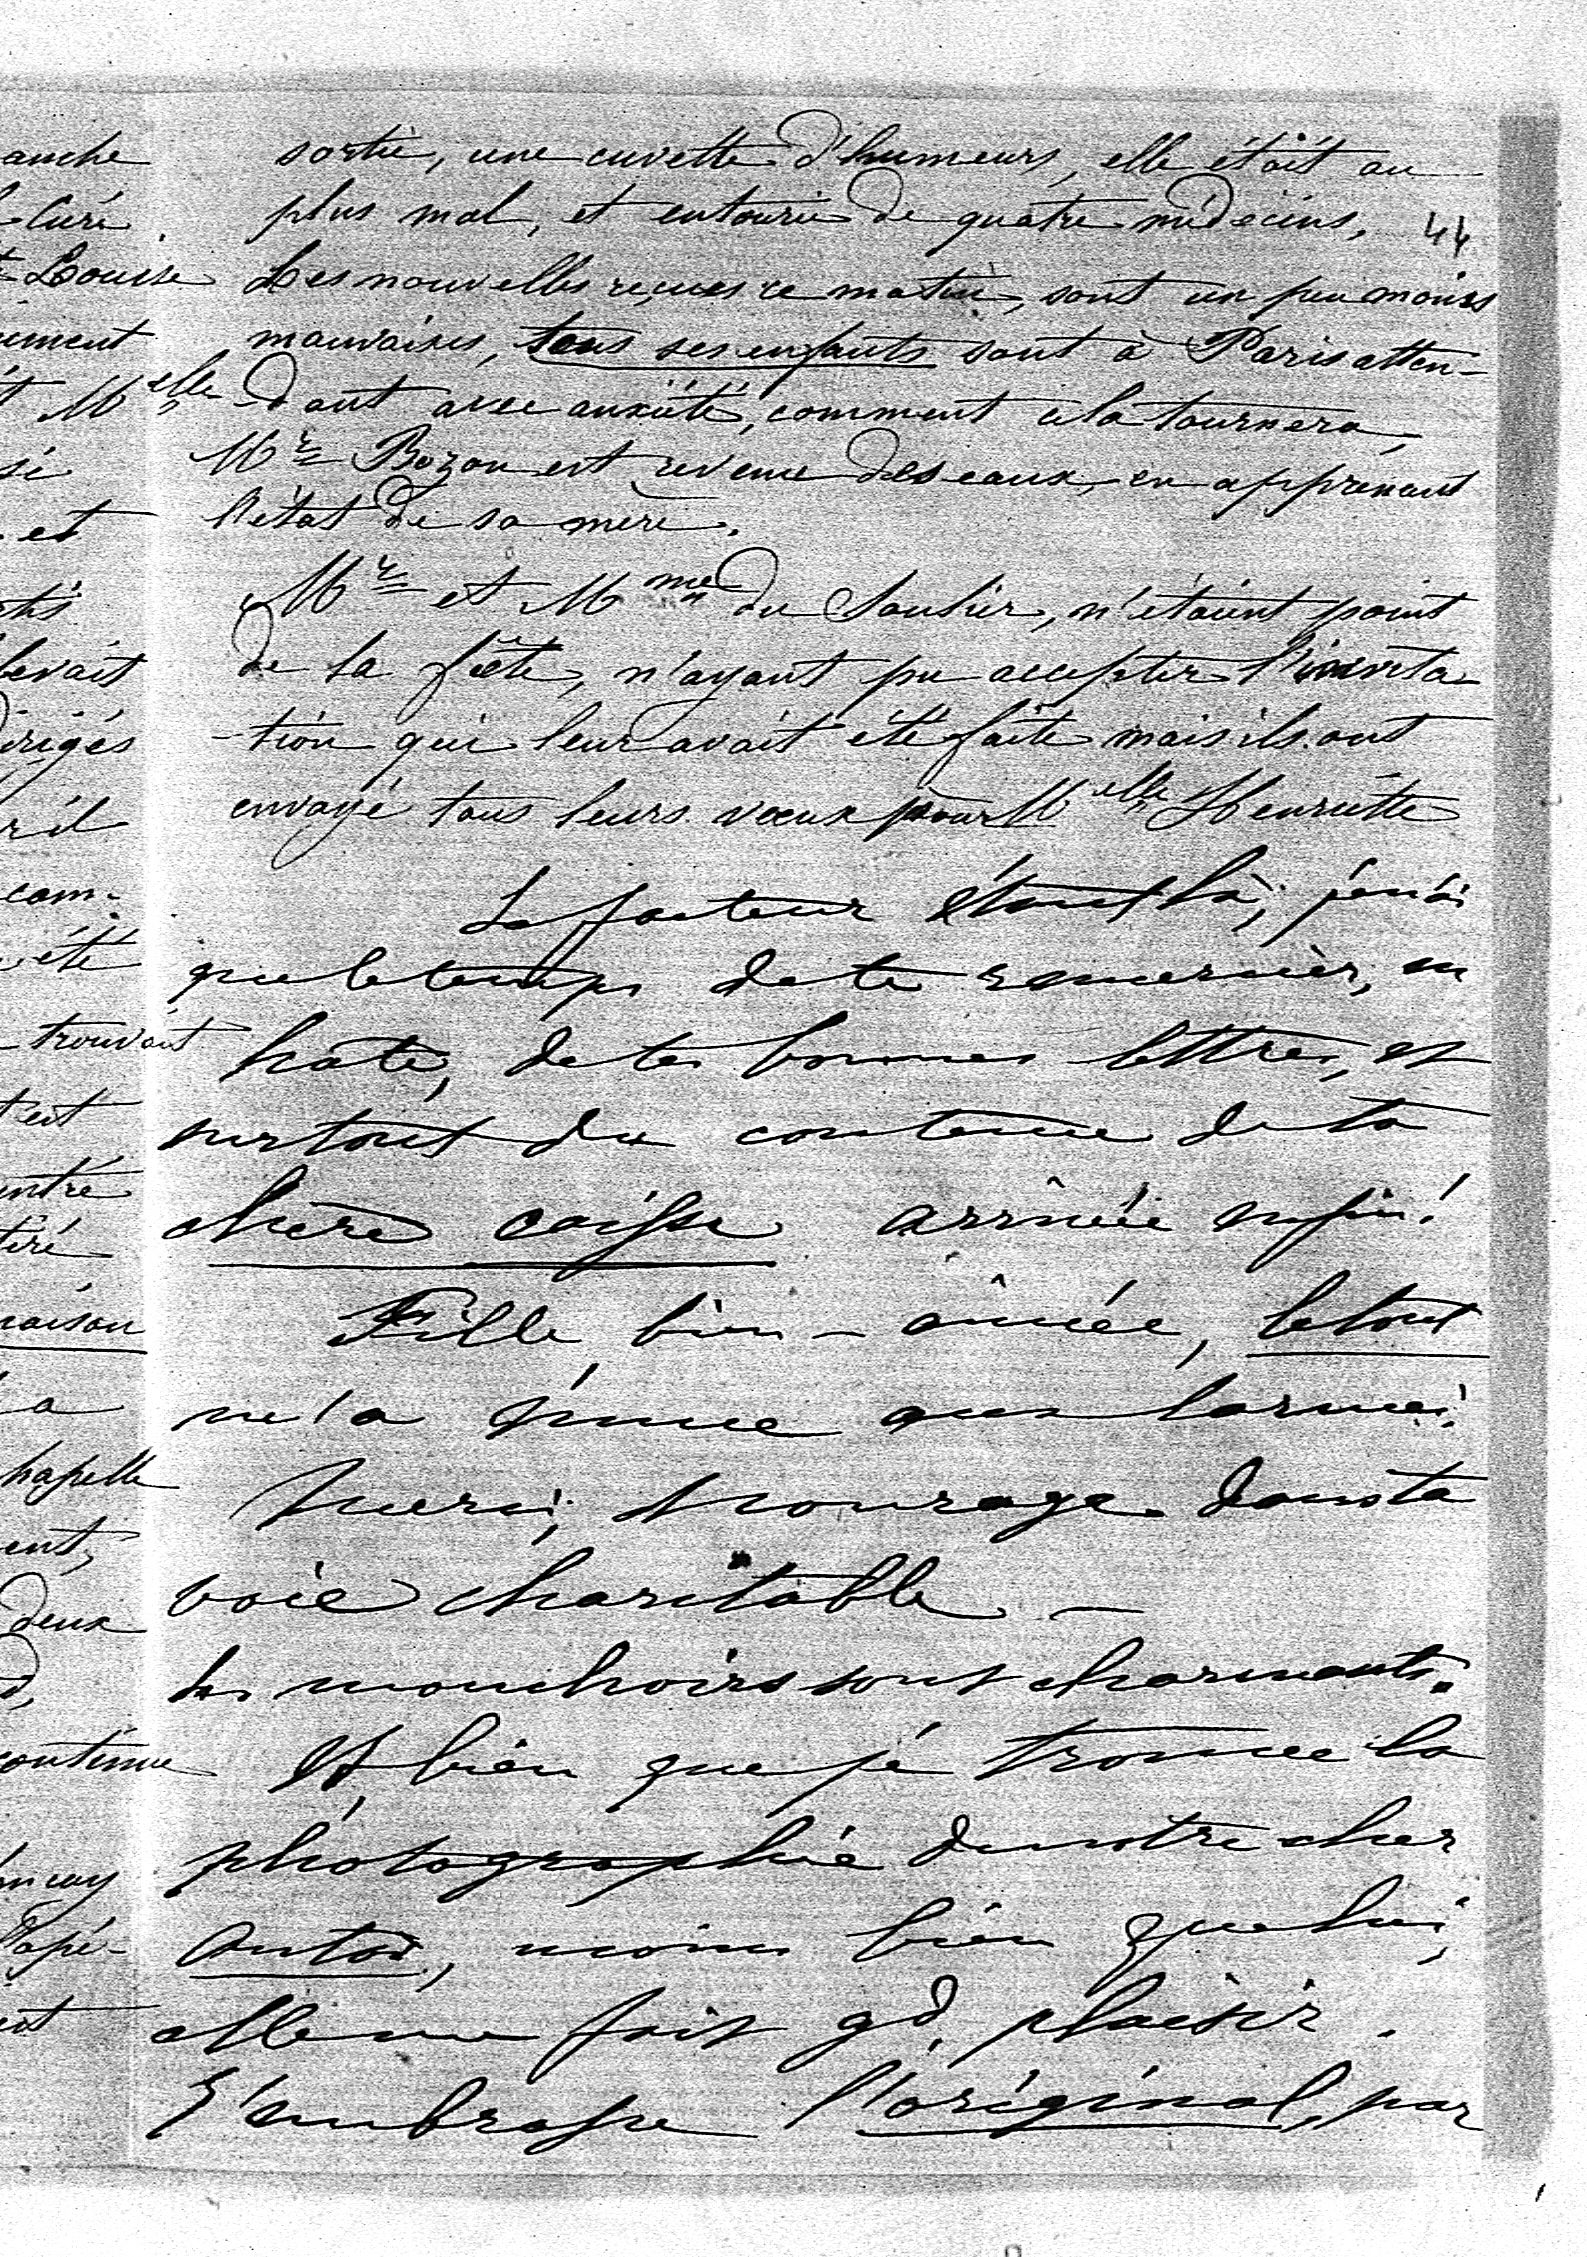 sortie, une cuvette d'humeurs, elle était au
plus mal, et entourée de quatre médecins,
44
Les nouvelles reçues ce matin, sont un peu moins
mauvaises, tous ses enfants sont à Paris atten-
-dant avec anxiété, comment cela tournera,
Mr Bozon est revenu des eaux, en apprenant
l'état de sa mère.
Mr et Mme du Saulier, n'étaient point
de la fête, n'ayant pu accepter l'invita
-tion qui leur avait été faite mais ils ont
envoyé tous leurs voeux pour Melle Henriette
Le facteur étant là, j'en ai
que le temps de te remercier, en
hâte, de tes bonnes lettres, et
surtout du contenu de ta
chère caisse arrivée enfin!
Fille bien-aimée, le tout
m'a émue aux larmes!
Merci, courage dans ta
voie charitable -
les mouchoirs sont charmants.
Et bien que je trouve la
photographie de notre cher
Anto, moins bien que lui,
elle me fait gd plaisir.
J'embrasse l'original, par
anche
Curé
Louise
ement
Melle
si
et
tis
levait
irigés
ril
com-
été
trouvant
est
entré
tiré
raison
a
hapelle
ent,
deux
contenue